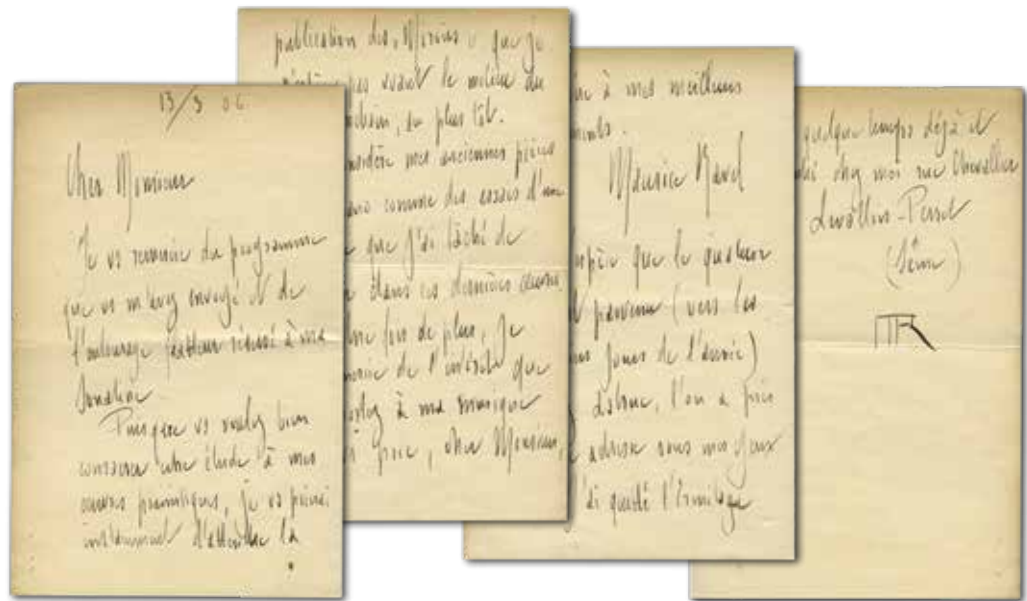 13/3 06
Cher Monsieur
Je vs remercie du programme
que vs m'avez envoyé et de
l'entourage flatteur réservé à ma
Sonatine.
Puisque vs voulez bien
consacrer une étude à mes
œuvres pianistiques, je vs prierai
instamment d'attendre la
publication des "Miroirs" que je
pas avant le milieu du
prochain, au plus tôt.
mes anciennes pièces
comme des essais d'une
que j'ai tâché de
dans ces dernières œuvres.
Une fois de plus, je
de l'intérêt que
portez à ma musique
prie, cher Monsieur,
à mes meilleurs
Maurice Ravel
que le
parvenu (vers les
jours de l'année)
Delage, l'on a pris
adresse sous mes yeux
j'ai quitté l'Ermitage
quelque temps déjà et
chez moi rue Chevallier
Levallois-Perret
(Seine)
MR